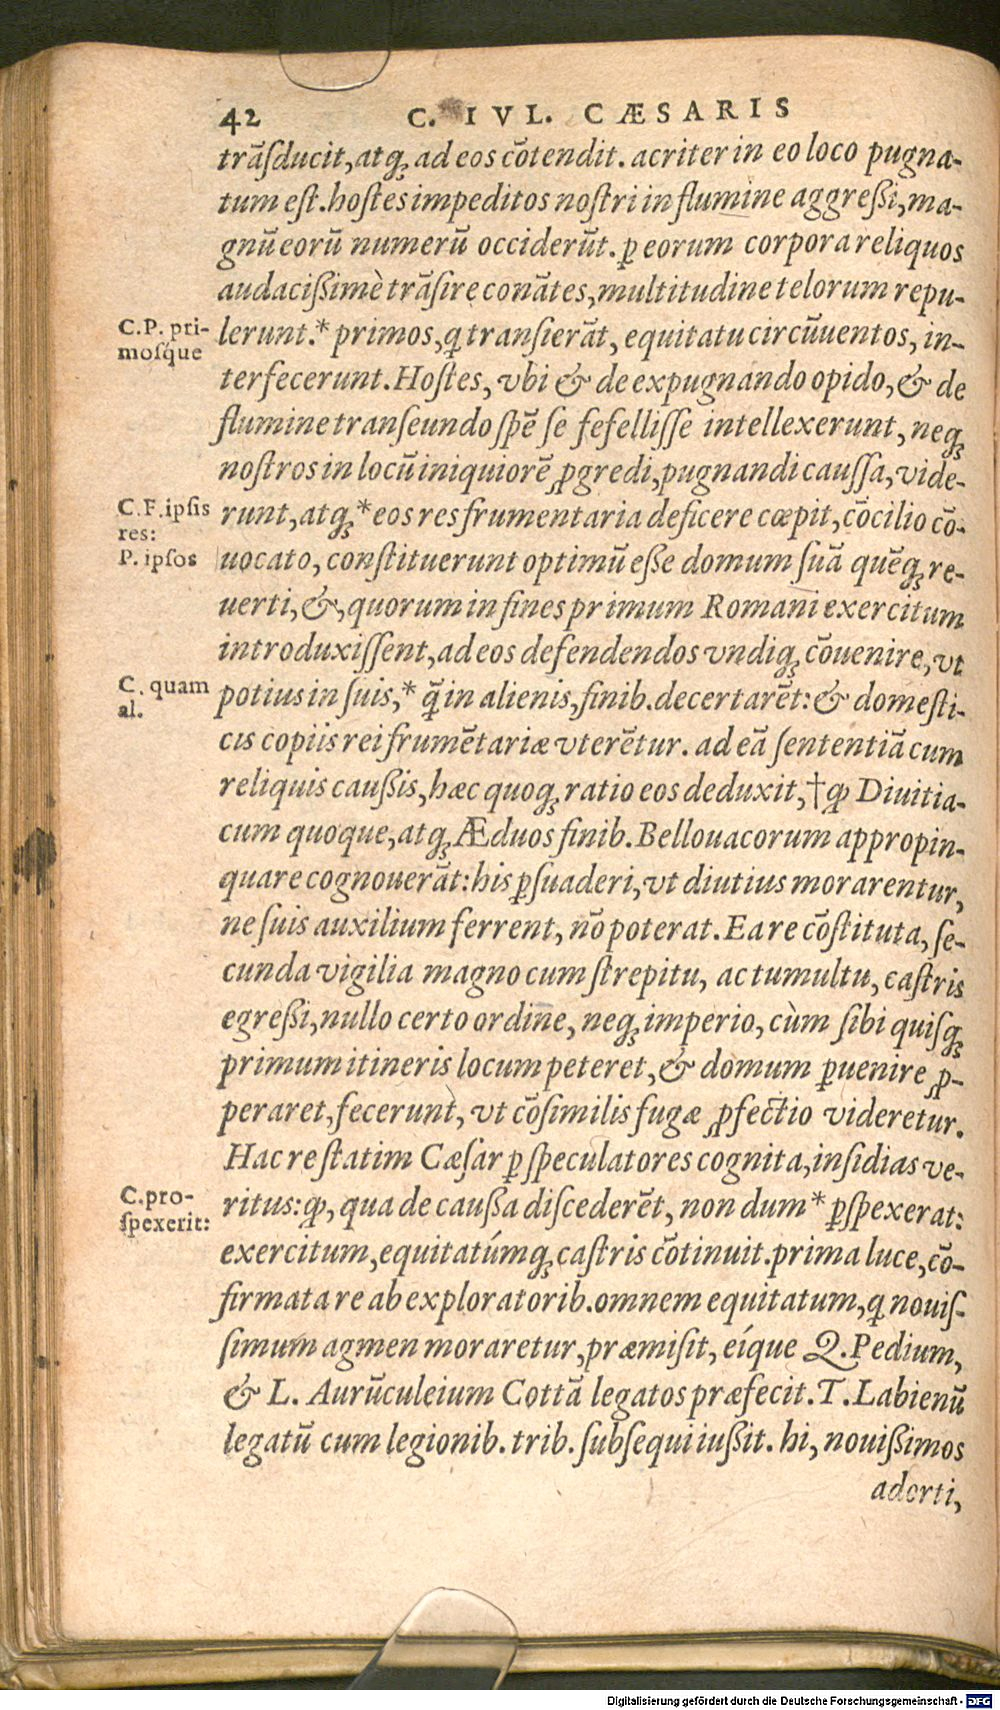 42 C. IVL. CÆSARIS
trãſducit, atq́ꝫ ad eos cõtendit. acriter in eo loco pugna-
tum eſt. hoſtes impeditos noſtri in flumine aggreßi, ma-
gnũ eorũ numerũ occiderũt. ꝑ eorum corpora reliquos
audacißimè trãſire conãtes, multitudine telorum repu-
C.P. pri-
moſque
lerunt.* primos, q tranſierãt, equitatu circũuentos, in-
terfecerunt. Hoſtes, vbi & de expugnando opido, & de
flumine tranſeundo ſpẽ ſe fefelliſſe intellexerunt, neqꝫ
noſtros in locũ iniquiorẽ ꝓgredi, pugnandi cauſſa, vide-
C.F. ipſis
res:
P. ipſos
runt, atqꝫ *eos res frumentaria deficere cœpit, cõcilio cõ-
uocato, conſtituerunt optimũ eße domum ſuã quẽqꝫ re-
uerti, &, quorum in fines primum Romani exercitum
introduxiſſent, ad eos defendendos vndiqꝫ cõuenire, vt
C. quam
al.
potius in ſuis,* q̃ in alienis, finib. decertarẽt: & domeſti-
cis copiis rei frumẽtariæ vterẽtur. ad eã ſententiã cum
reliquis caußis, hæc quoqꝫ ratio eos deduxit, †ꝙ Diuitia-
cum quoque, atqꝫ Æduos finib. Bellouacorum appropin-
quare cognouerãt: his ꝑſuaderi, vt diutius morarentur,
ne ſuis auxilium ferrent, nõ poterat. Ea re cõſtituta, ſe-
cunda vigilia magno cum ſtrepitu, ac tumultu, caſtris
egreßi, nullo certo ordine, neqꝫ imperio, cùm ſibi quiſqꝫ
primum itineris locum peteret, & domum ꝑuenire ꝓ-
peraret, fecerunt, vt cõſimilis fugæ ꝓfectio videretur.
Hac re ſtatim Cæſar ꝑ ſpeculatores cognita, inſidias ve-
C. pro-
ſpexerit:
ritus: ꝙ, qua de caußa diſcederẽt, non dum* ꝑſpexerat:
exercitum, equitatúmqꝫ caſtris cõtinuit. prima luce, cõ-
firmata re ab exploratorib. omnem equitatum, q nouiſ-
ſimum agmen moraretur, præmiſit, eíque Q. Pedium,
& L. Aurũculeium Cottã legatos præfecit. T. Labienũ
legatũ cum legionib. trib. ſubſequi iußit. hi, nouißimos
adorti,
Digitalisierung gefördert durch die Deutsche Forschungsgemeinschaft - DFG